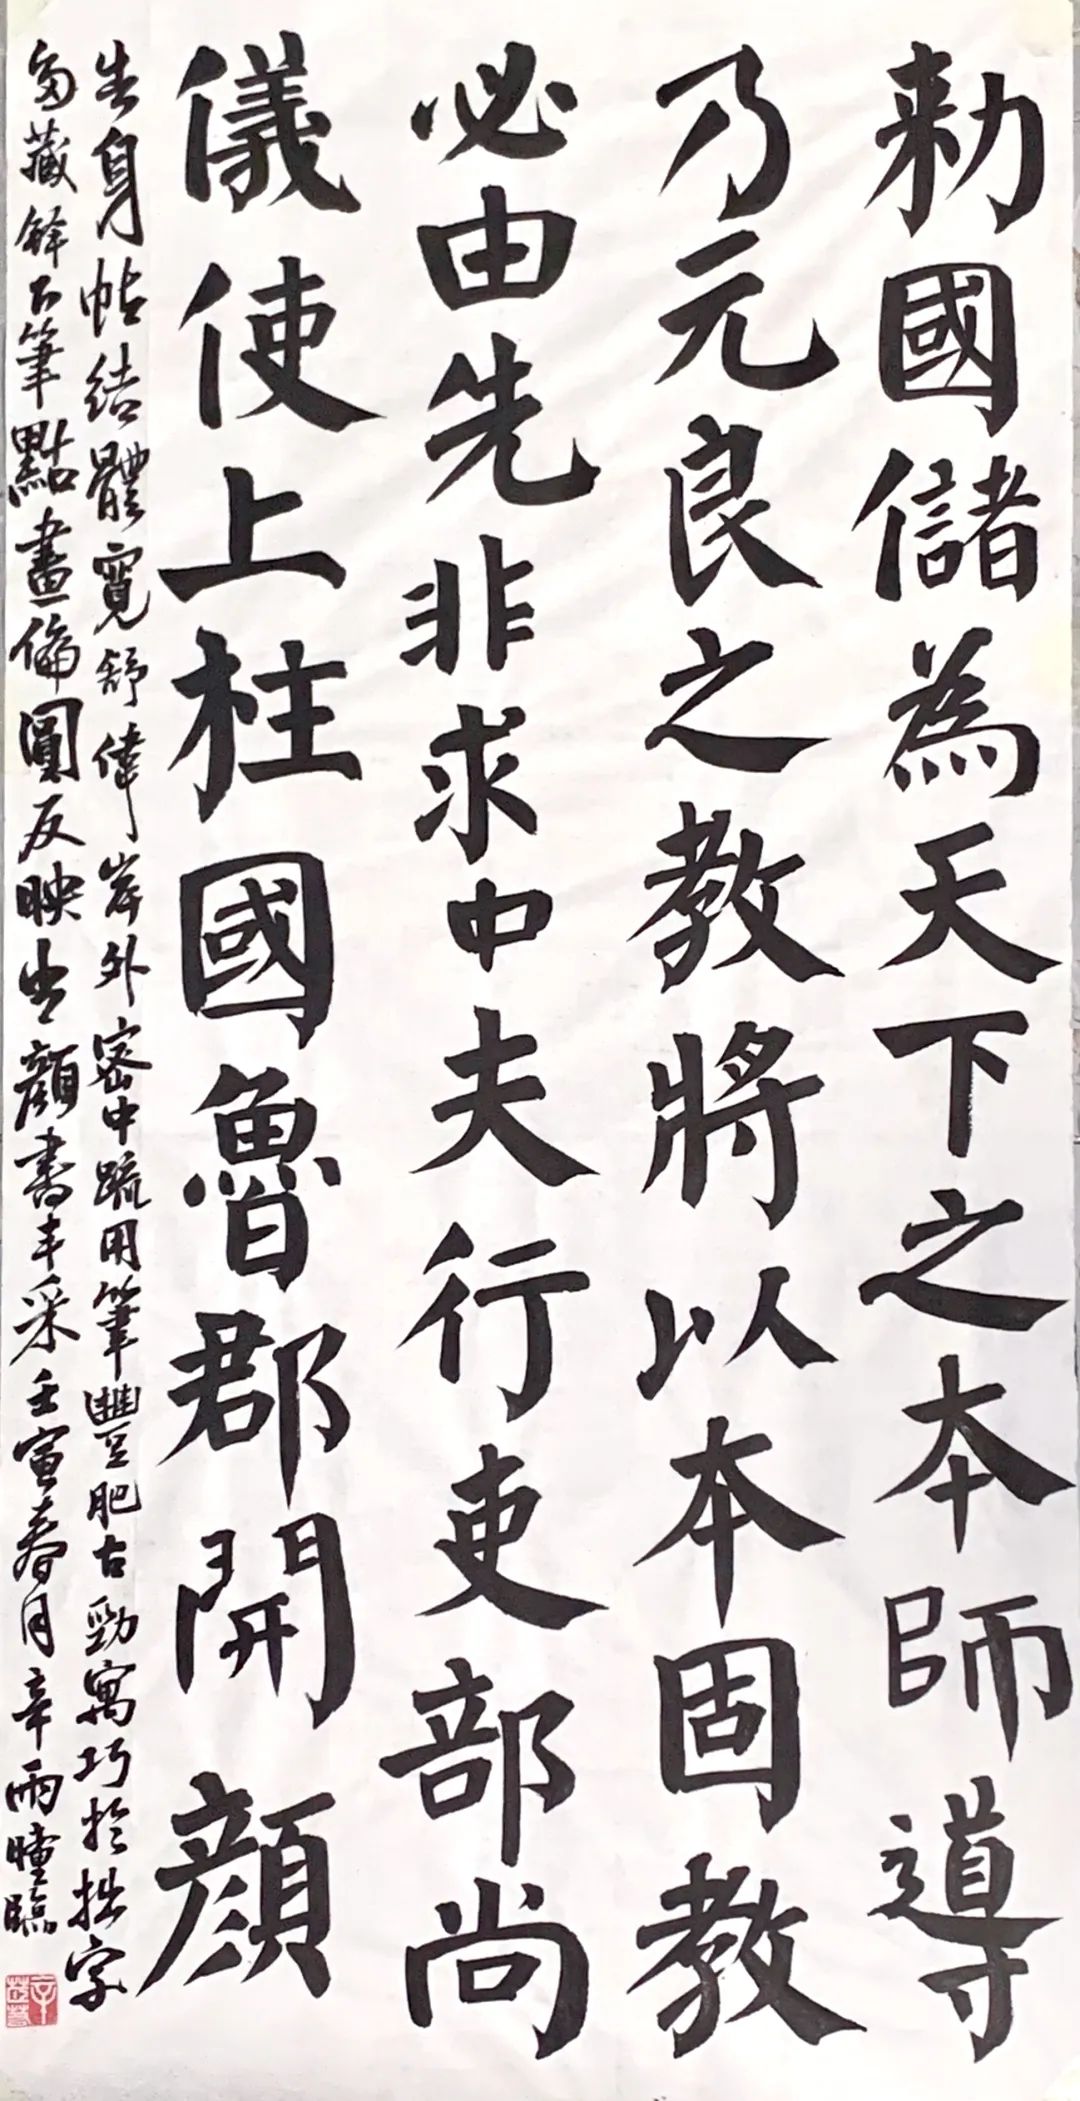 勑國儲為天下之本師導
乃元良之教將以本固教
必由先非求中夫行吏部尚
儀使上柱國魯郡開顔
告身帖結體寬舒偉岸外密中疏用筆豐肥古勁寓巧於拙字
多藏鋒下筆點畫偏圓反映出顏書丰采壬寅春月辛雨瞳臨